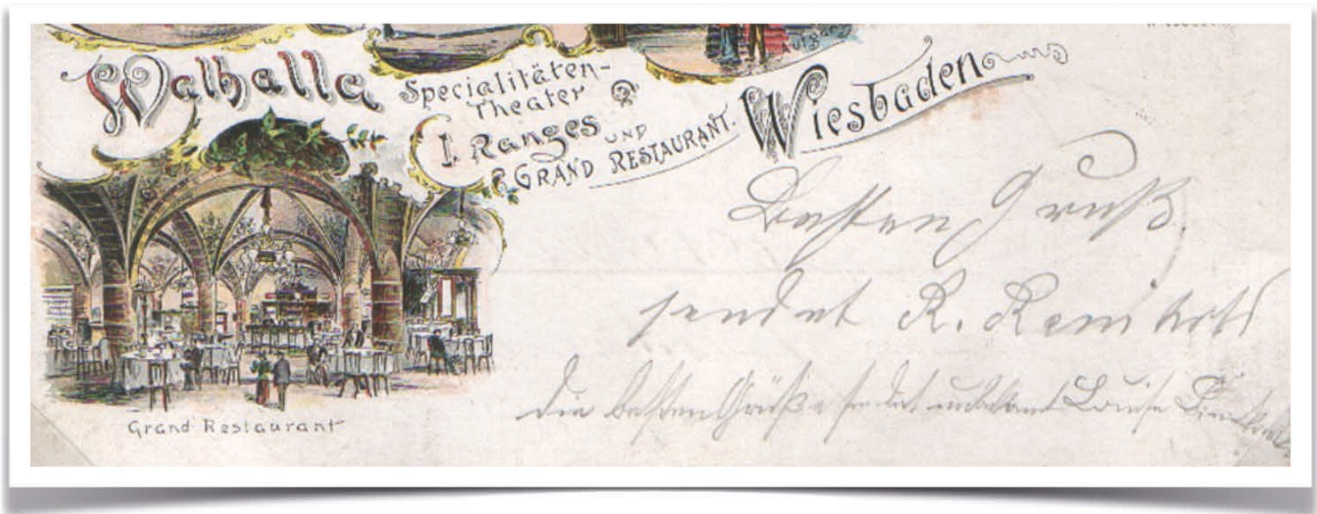 Walhalla
Specialitäten-
Theater
I. Ranges UND
GRAND RESTAURANT.
Wiesbaden
Aufgang
Grand Restaurant
Besten Gruß
sendet R.
die besten Grüße sendet unbekannt Louise